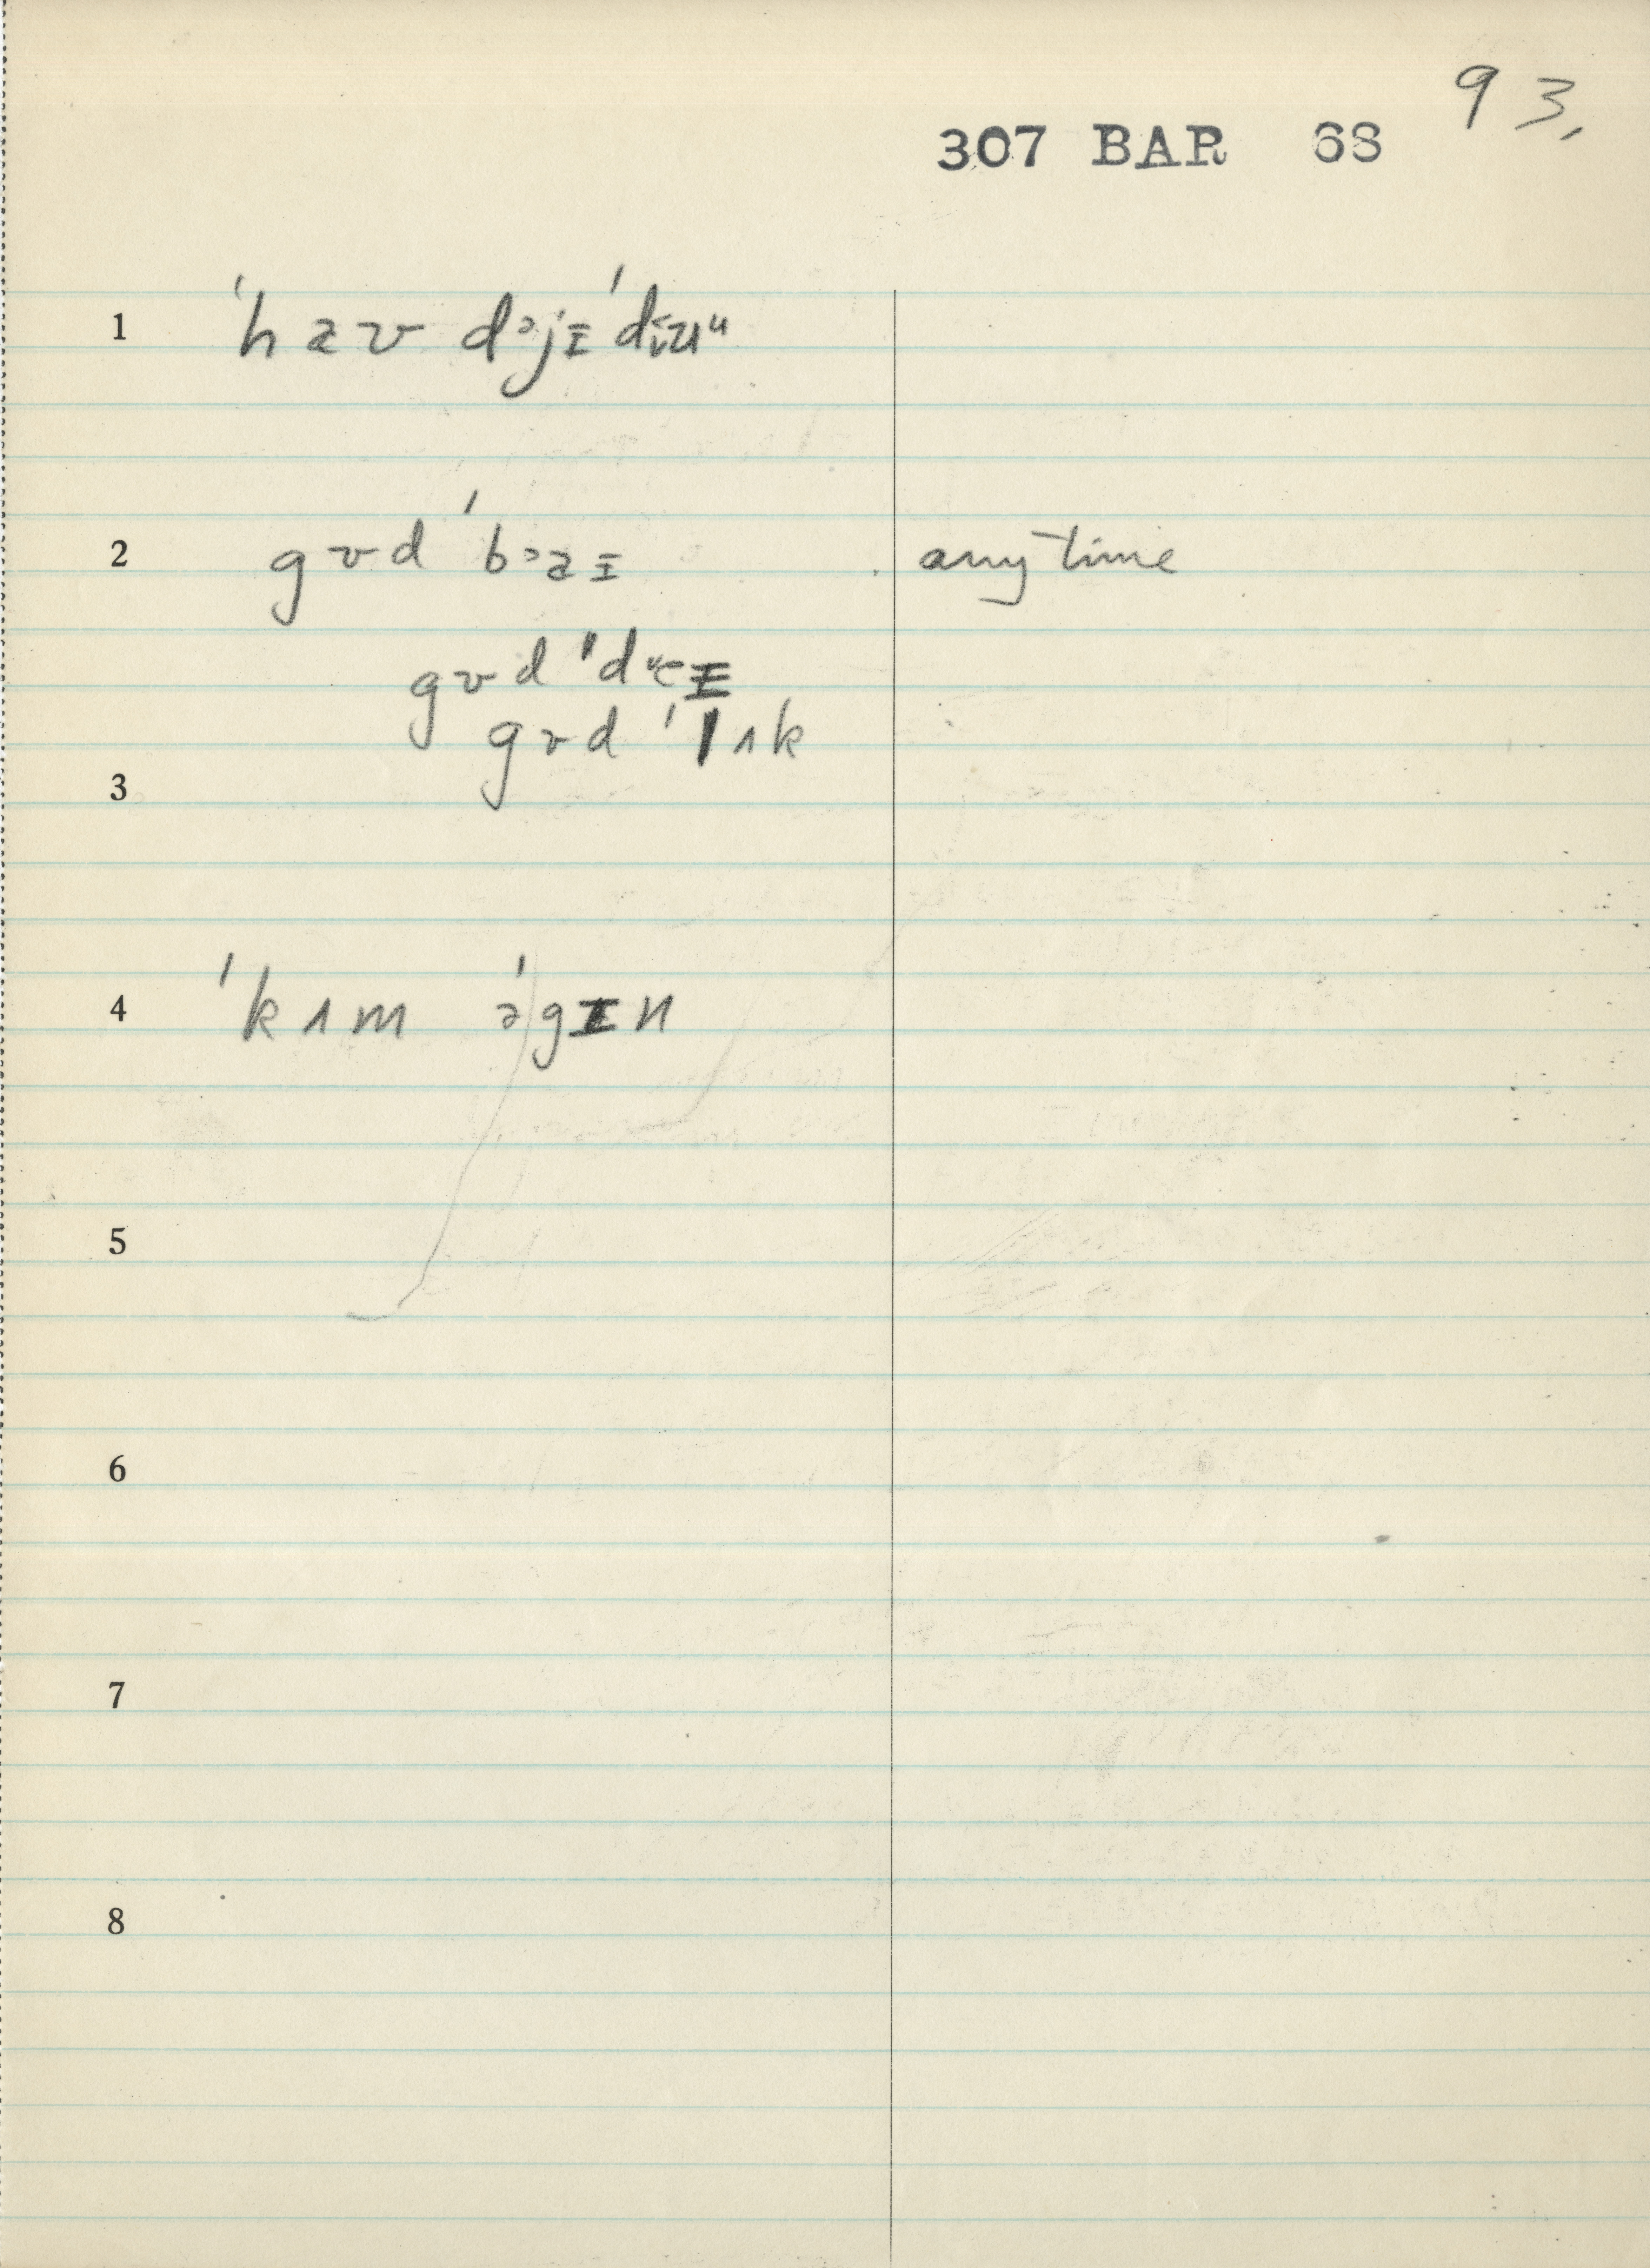 93.
307 BAR 68
1 ˈhaʊ dᵊjɪˈdɪuᵘ
2 gʊd ˈbᵊaɪ anytime
gʊd ˈdᵉɛɪ
gʊd ˈlʌk
3
4 ˈkʌm əˈgɪn
5
6
7
8